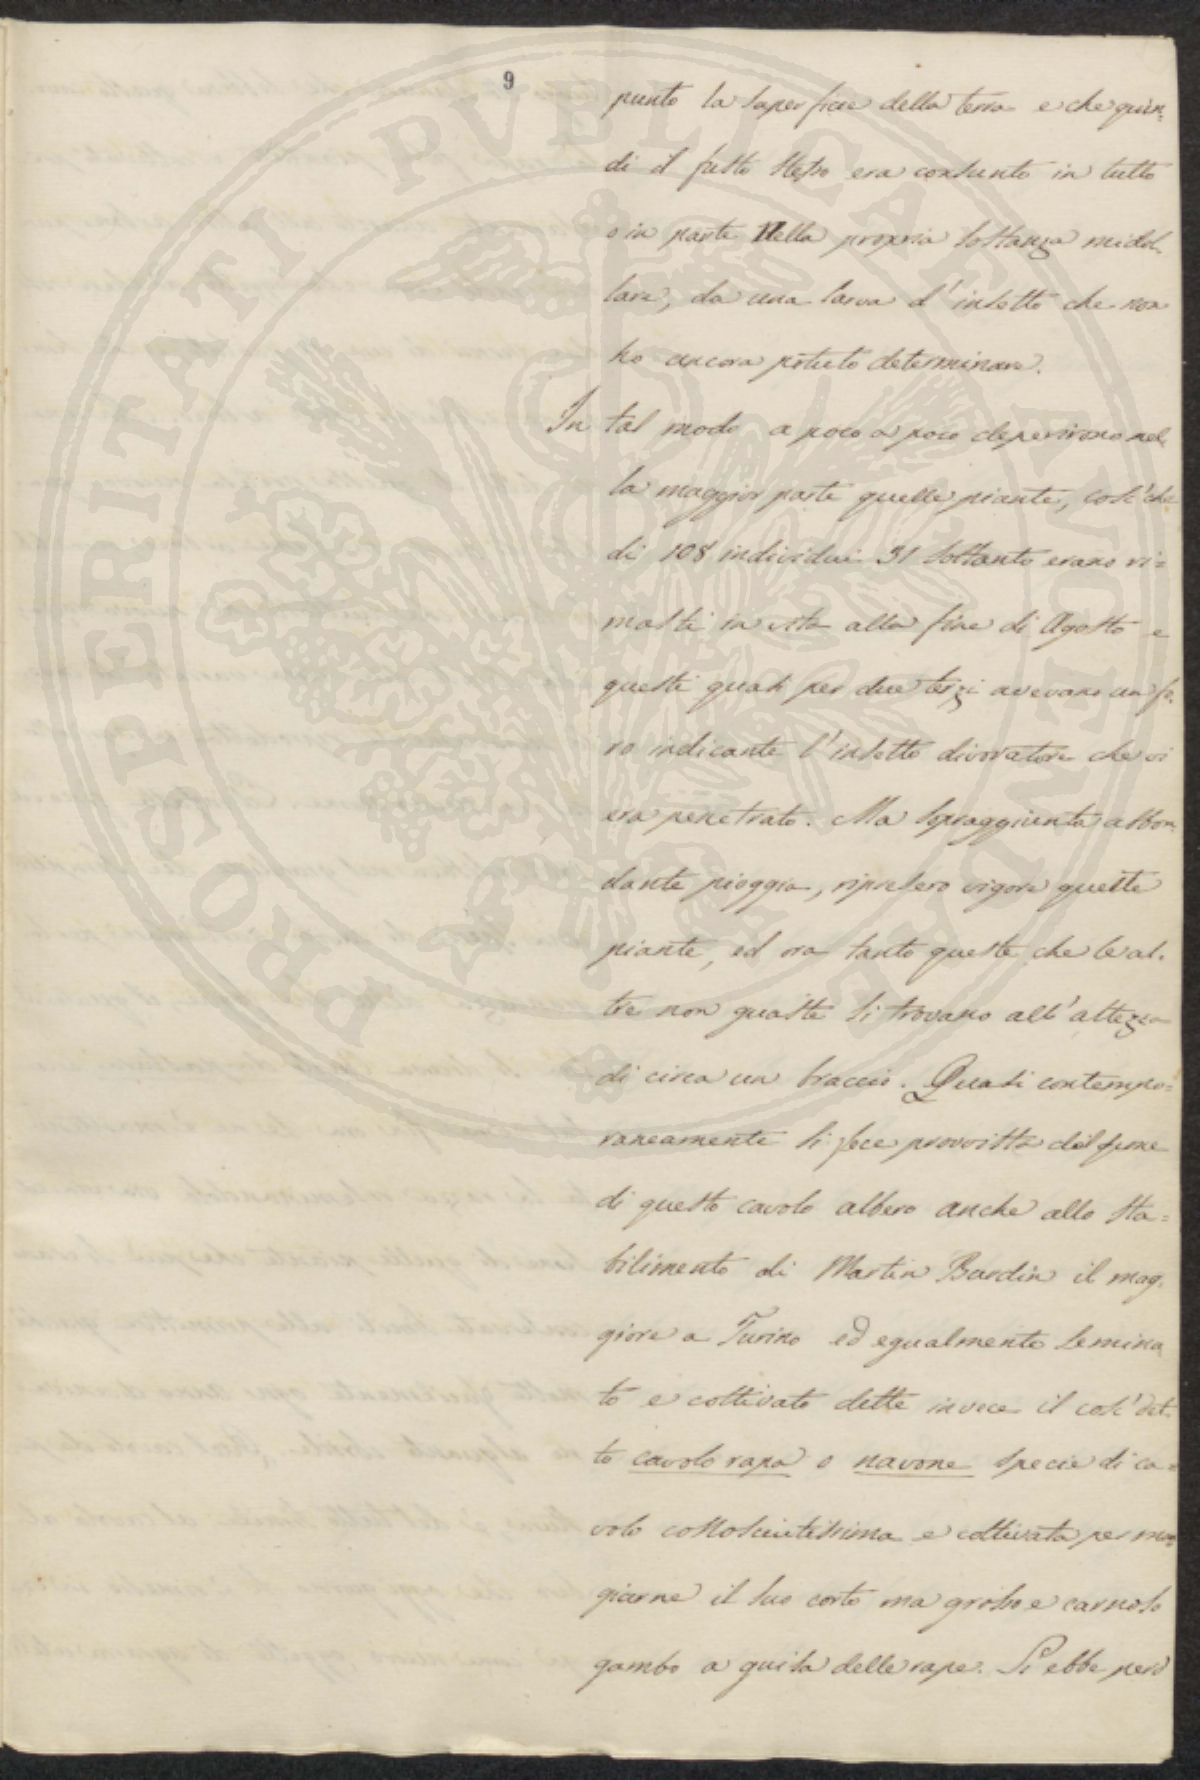 9
punto la superficie della terra e che quin=
di il fusto stesso era consunto in tutto
o in parte nella propria sostanza midol=
lare, da una larva d'insetto che non
ho ancora potuto determinare.
In tal modo a poco a poco deperirono nel=
la maggior parte quelle piante, cosi che
di 108 individui 31 soltanto erano ri=
masti in vita alla fine di Agosto e
questi quasi per due terzi avevano un fo=
ro indicante l'insetto divoratore che vi
era penetrato. Ma sopraggiunta abbon=
dante pioggia, ripresero vigore queste
piante, ed ora tanto queste che le al=
tre non guaste si trovano all'altezza
di circa un braccio. Quasi contempo=
raneamente si fece provvista del seme
di questo cavolo albero anche allo sta=
bilimento di Martin Burdin il mag=
giore a Turino ed egualmente semina
to e coltivato dette invece il cosi det=
to cavolo rapa o navone specie di ca=
volo conosciutissima e coltivata per man
giarne il suo corto ma grosso e carnoso
gambo a guisa delle rape. Si ebbe però
PROSPERITATI PUBLICAE AUGENDAE